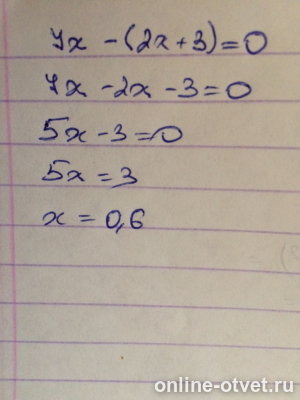 7x - (2x + 3) = 0
7x - 2x - 3 = 0
5x - 3 = 0
5x = 3
x = 0,6
online-otvet.ru